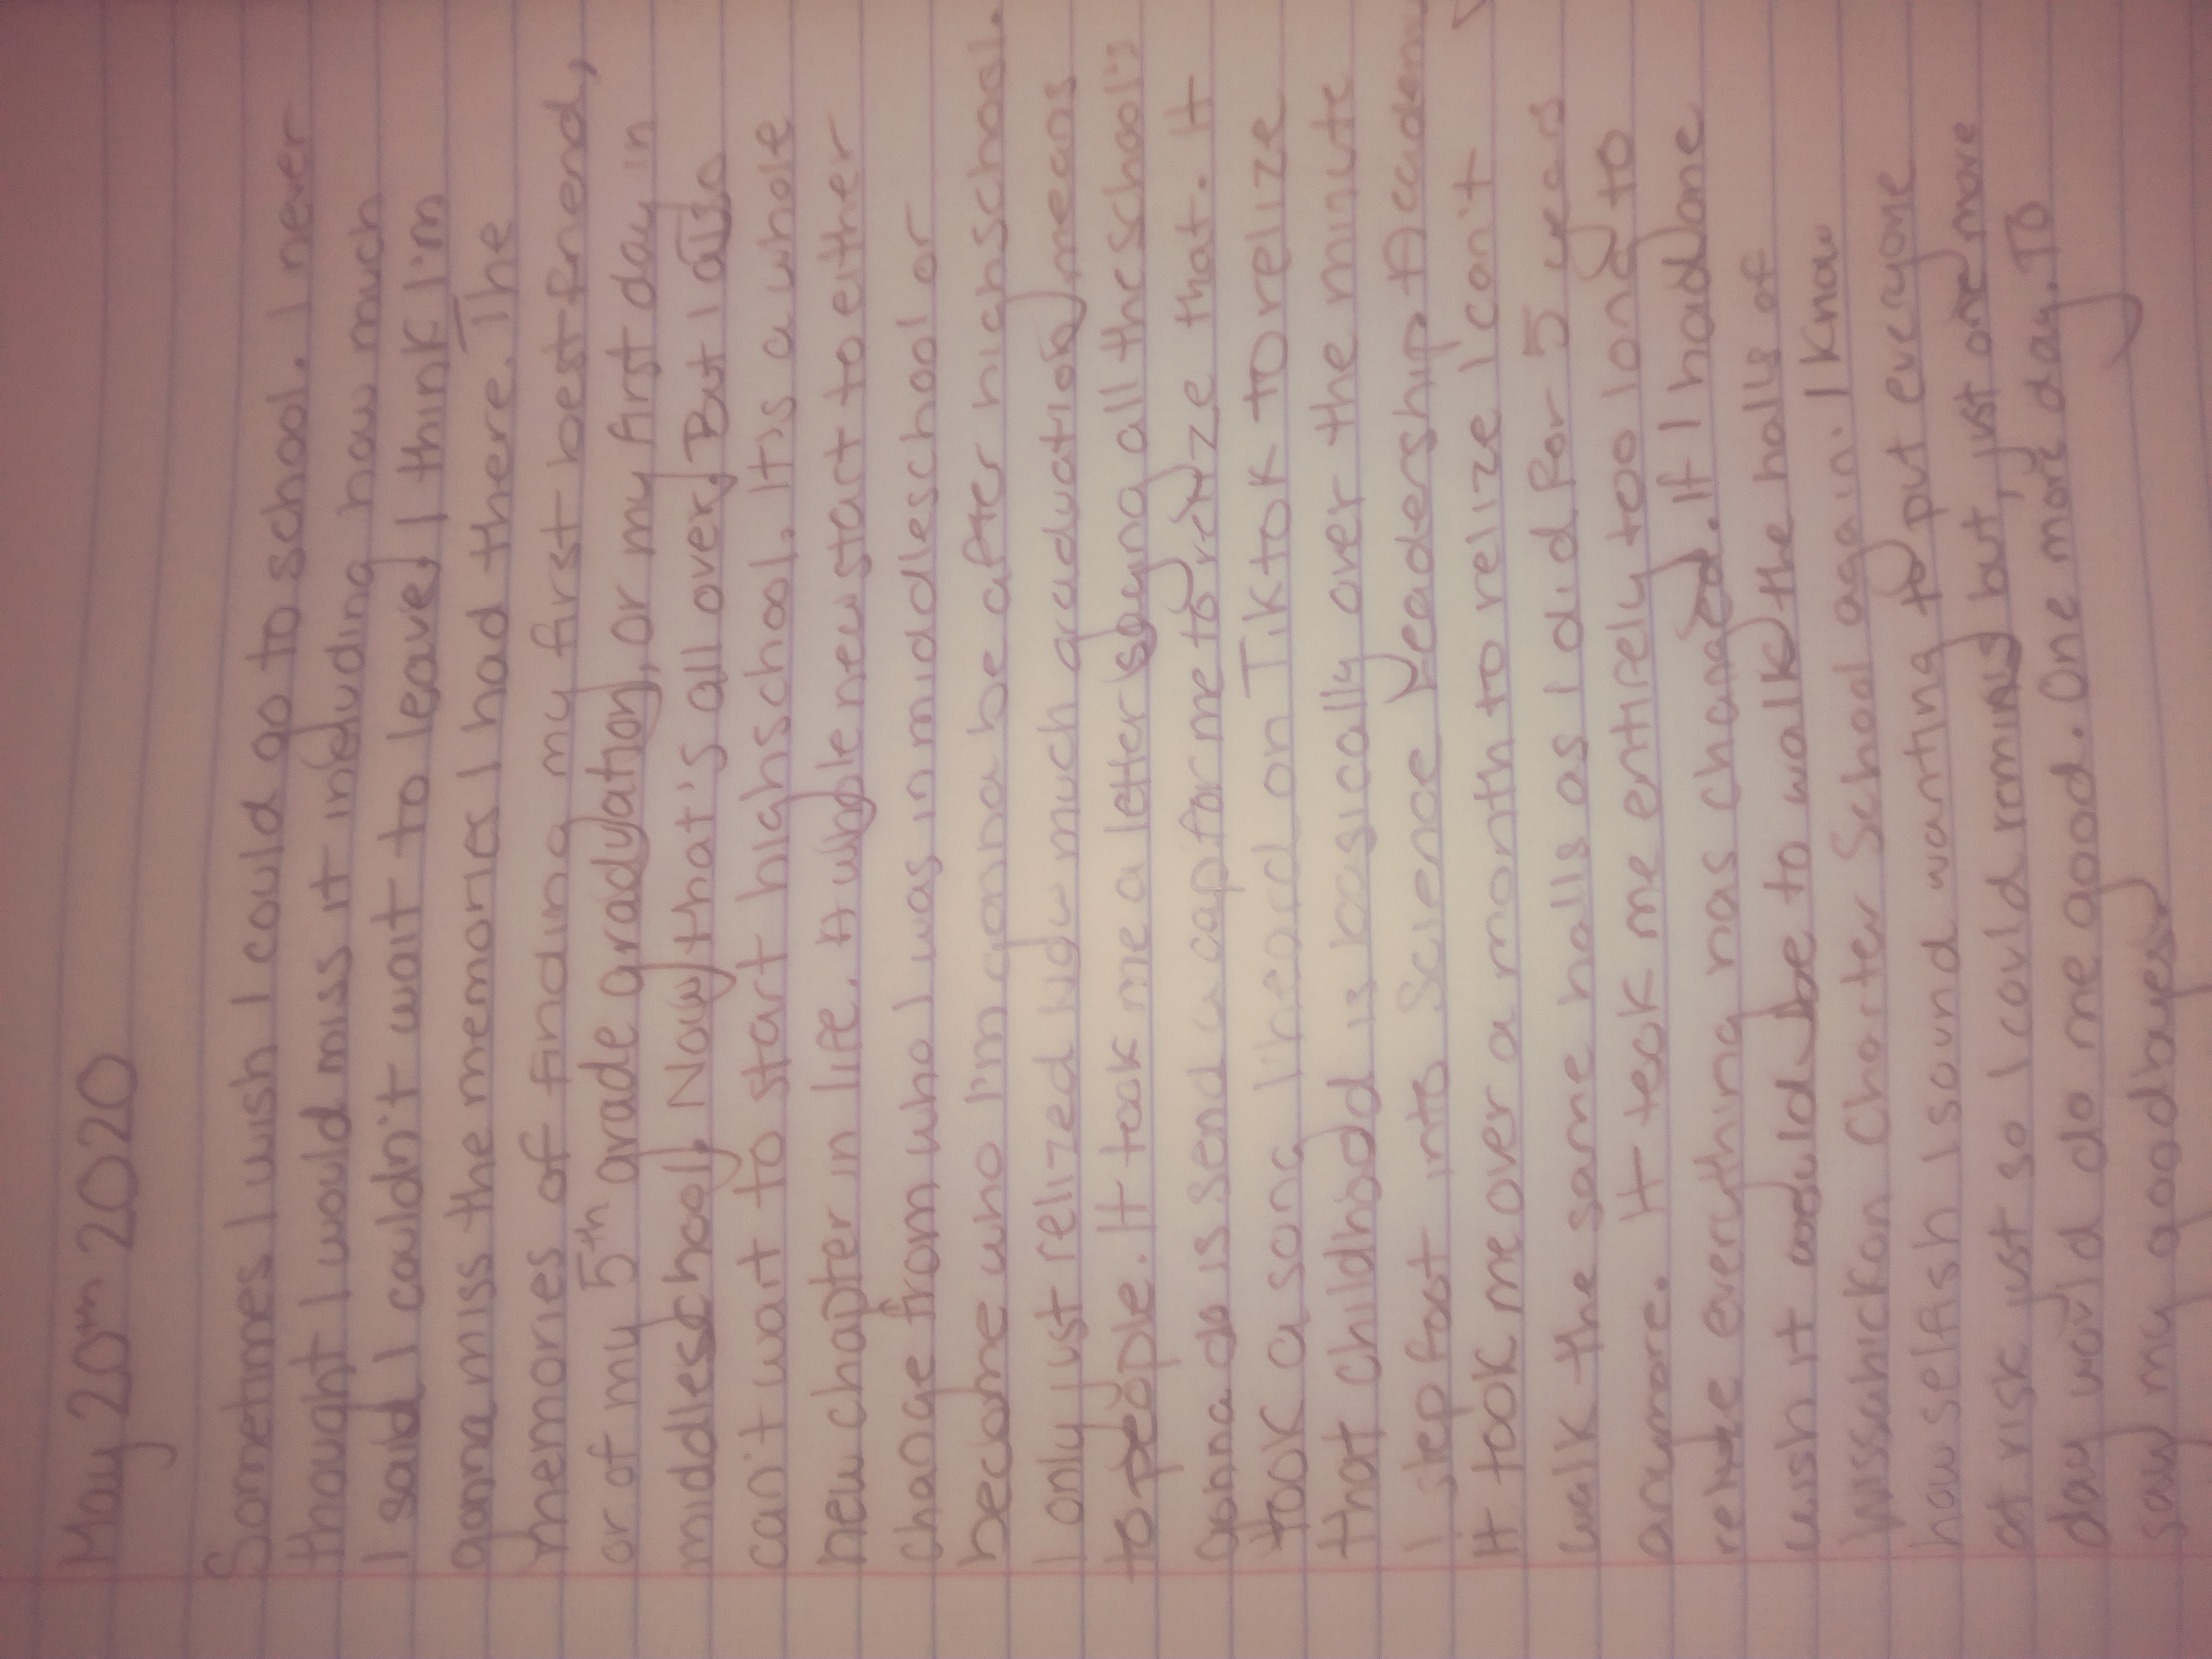 May 20th 2020
Sometimes I wish I could go to school. I never
thought I would miss it including how much
I said I couldn't wait to leave. I think I'm
gonna miss the memories I had there. The
memories of finding my first best friend,
or of my 5th grade graduation, or my first day in
middleschool. Now that's all over. But I also
can't wait to start highschool. It's a whole
new chapter in life. A whole new start to either
change from who I was in middleschool or
become who I'm gonna be after highschool.
I only just relized how much graduation means
to people. It took me a letter saying all the school's
gonna do is send a cap for me to relize that. It
took a song I heard on Tiktok to relize
that childhood is basically over the minute
I step foot into Science Leadership Academy
It took me over a month to relize I can't
walk the same halls as I did for 5 years
anymore. It took me entirely too long to
relize everything has changed. If I had one
wish it would be to walk the halls of
Wissahickon Charter School again. I know
how selfish I sound wanting to put everyone
at risk just so I could roming but just one more
day would do me good. One more day. To
say my goodbyes.